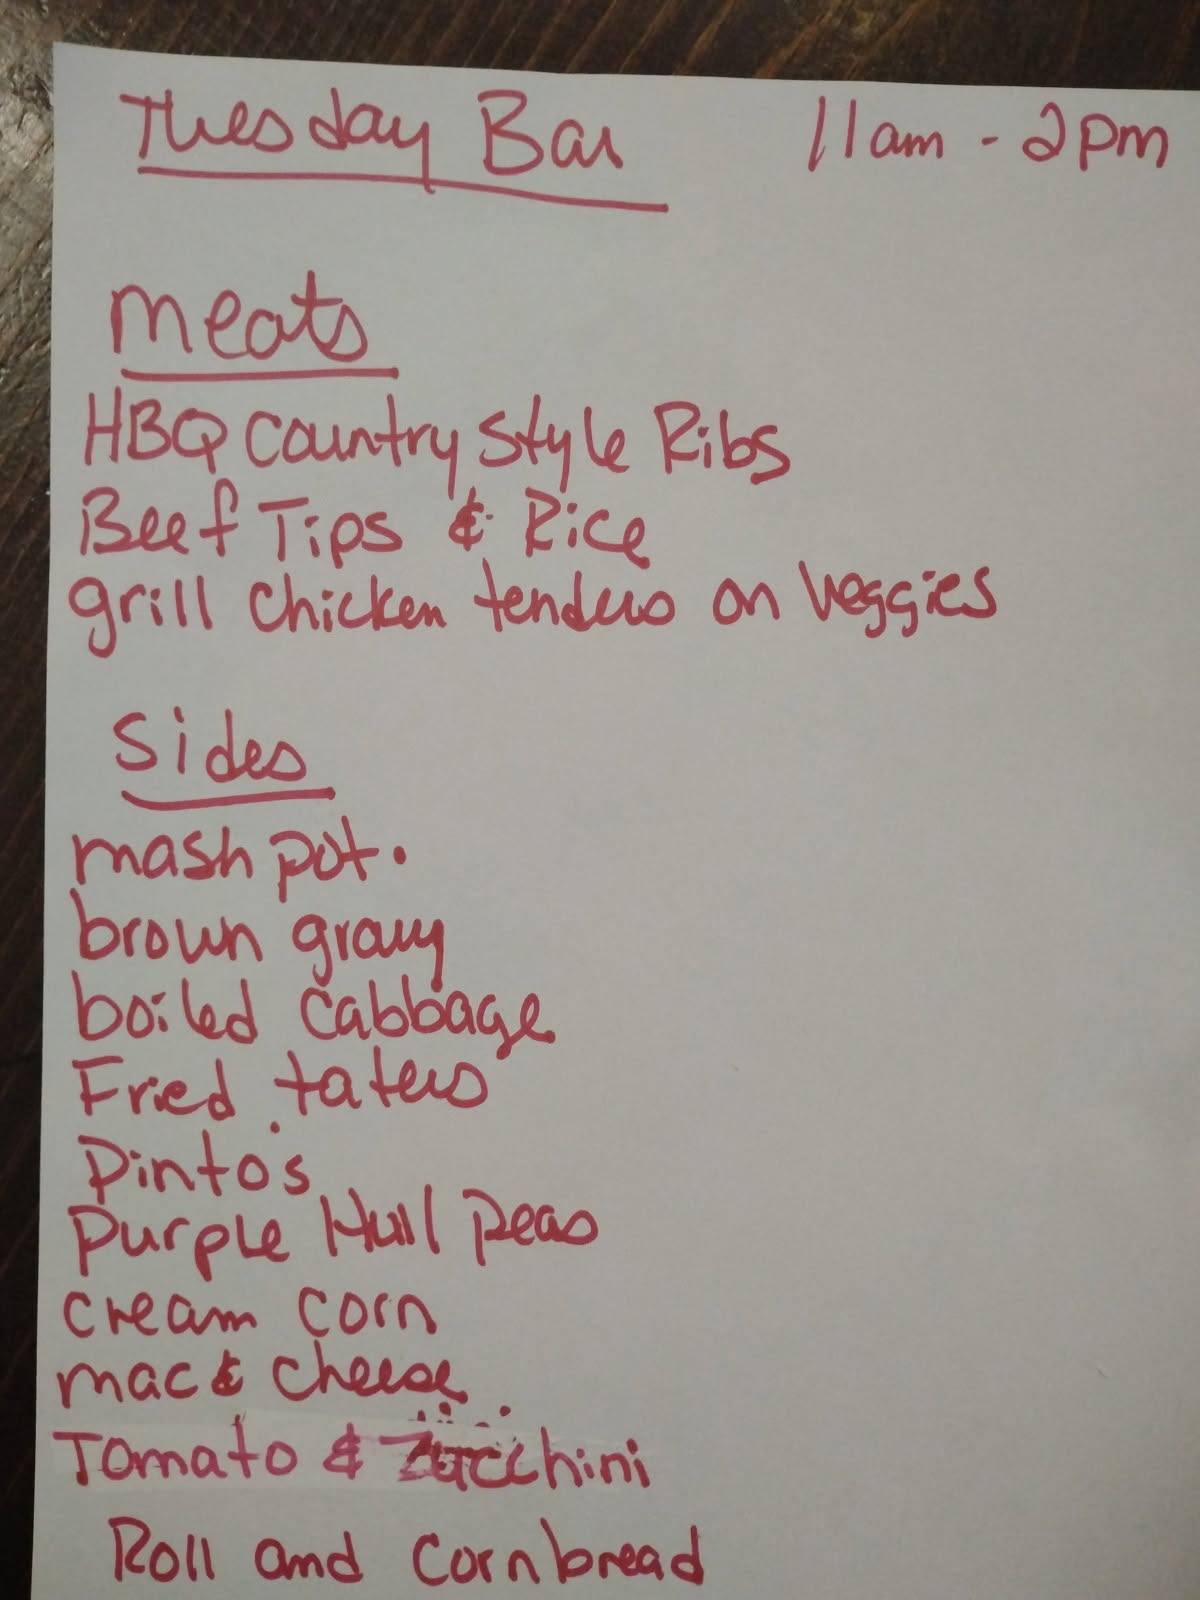 Tuesday Bar 11am - 2pm
meats
HBQ Country Style Ribs
Beef Tips & Rice
grill Chicken tenders on Veggies
Sides
mash pot.
brown gravy
boiled cabbage
Fried taters
Pinto's
Purple Hull Peas
cream corn
mac & cheese
Tomato & Zucchini
Roll and Cornbread